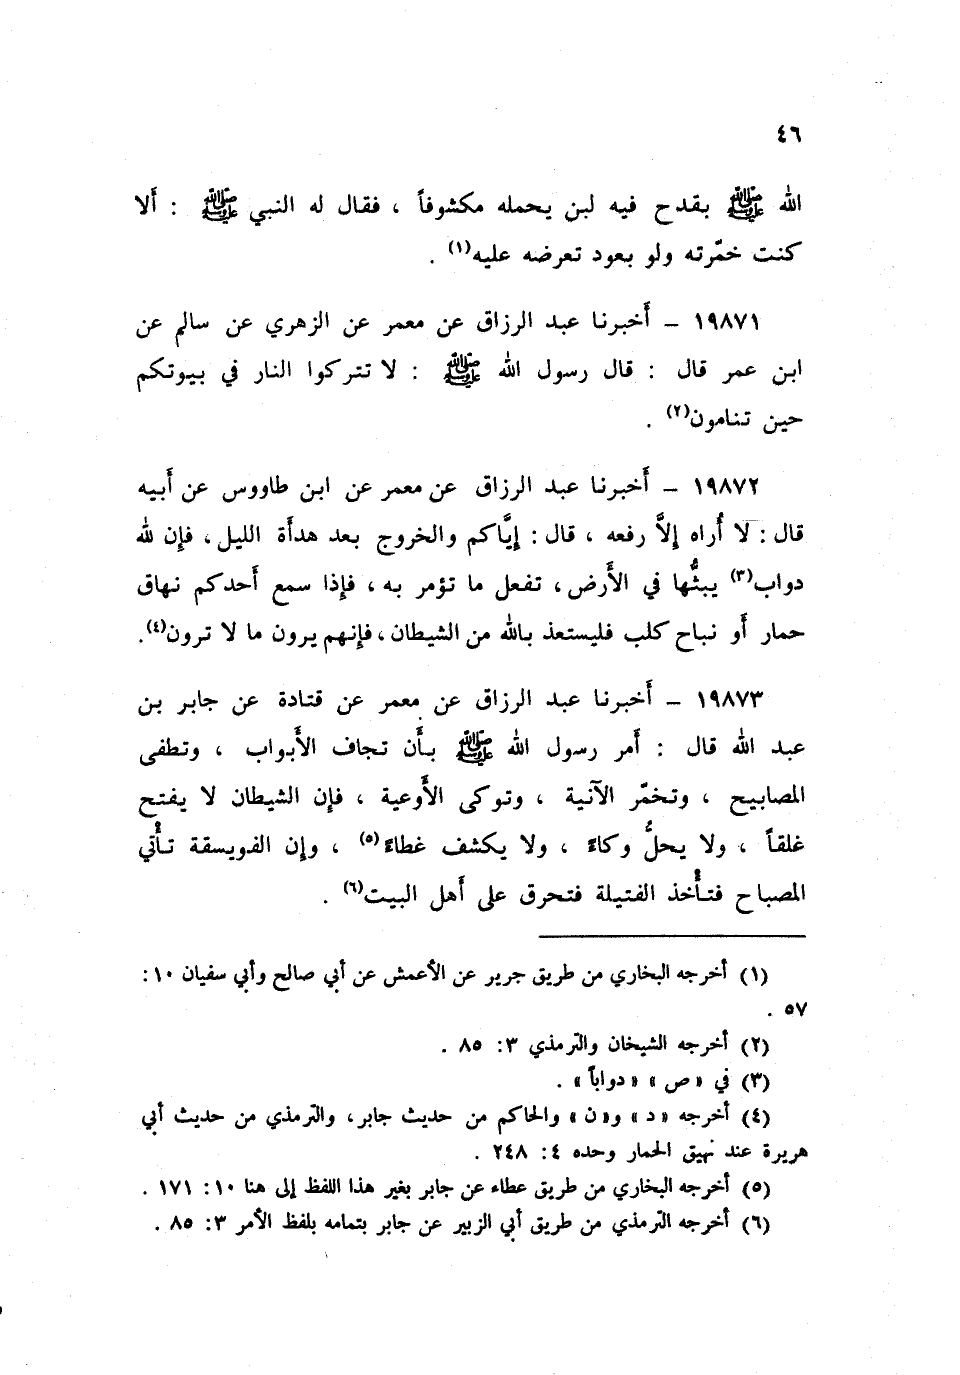 ٤٦
الله ﷺ بقدح فيه لبن يحمله مكشوفاً ، فقال له النبي ﷺ : أَلا
كنت خمّرته ولو بعود تعرضه عليه(١) .
١٩٨٧١ – أَخبرنا عبد الرزاق عن معمر عن الزهري عن سالم عن
ابن عمر قال : قال رسول الله ﷺ : لا تتركوا النار في بيوتكم
حين تنامون(٢) .
١٩٨٧٢ – أَخبرنا عبد الرزاق عن معمر عن ابن طاووس عن أَبيه
قال : لا أُراه إِلاَّ رفعه ، قال : إِيَّاكم والخروج بعد هدأَة الليل ، فإِن لله
دواب(٣) يبثُّها في الأَرض ، تفعل ما تؤمر به ، فإِذا سمع أَحدكم نهاق
حمار أَو نباح كلب فليستعذ بالله من الشيطان ، فإِنهم يرون ما لا ترون(٤) .
١٩٨٧٣ – أَخبرنا عبد الرزاق عن معمر عن قتادة عن جابر بن
عبد الله قال : أَمر رسول الله ﷺ بأَن تجاف الأَبواب ، وتطفى
المصابيح ، وتخمّر الآنية ، وتوكى الأَوعية ، فإِن الشيطان لا يفتح
غلقاً ، ولا يحلُّ وكاءً ، ولا يكشف غطاءً(٥) ، وإِن الفويسقة تأْتي
المصباح فتأْخذ الفتيلة فتحرق على أَهل البيت(٦) .
(١) أخرجه البخاري من طريق جرير عن الأعمش عن أبي صالح وأبي سفيان ١٠ :
٥٧ .
(٢) أخرجه الشيخان والترمذي ٣ : ٨٥ .
(٣) في « ص » « دواباً » .
(٤) أخرجه « د » و « ن » والحاكم من حديث جابر ، والترمذي من حديث أبي
هريرة عند نهيق الحمار وحده ٤ : ٢٤٨ .
(٥) أخرجه البخاري من طريق عطاء عن جابر بغير هذا اللفظ إلى هنا ١٠ : ١٧١ .
(٦) أخرجه الترمذي من طريق أبي الزبير عن جابر بتمامه بلفظ الأمر ٣ : ٨٥ .